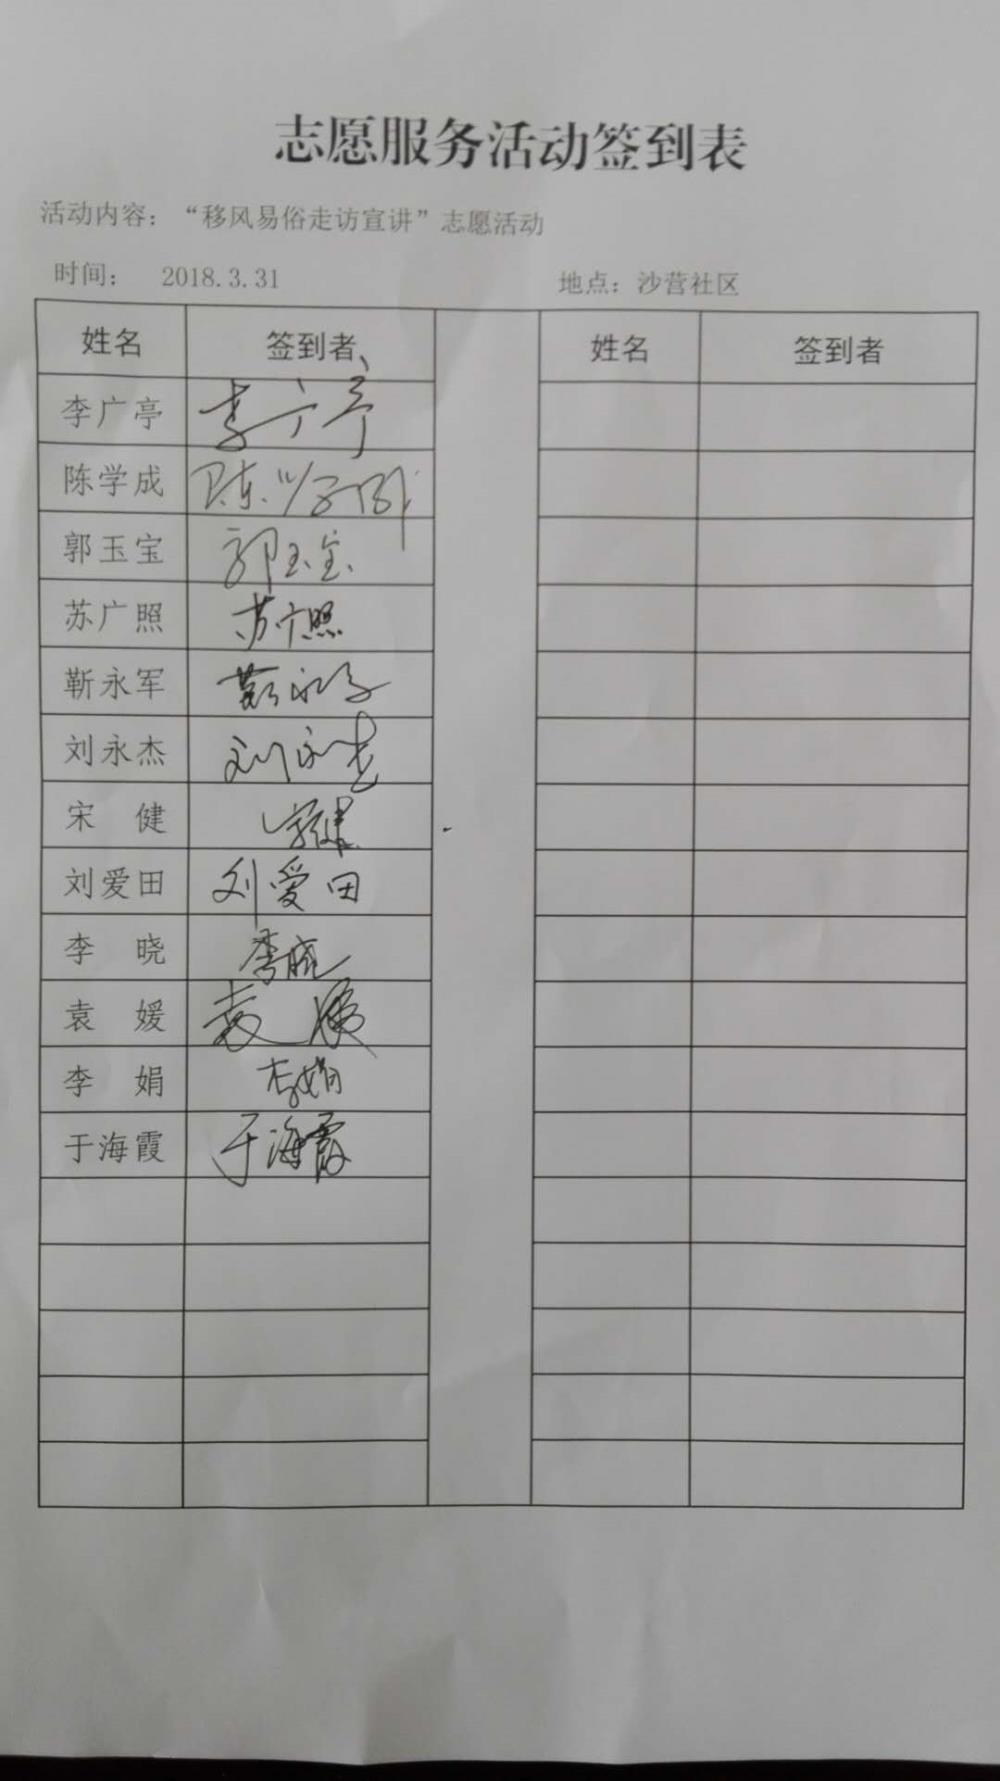 志愿服务活动签到表
活动内容：“移风易俗走访宣讲”志愿活动
时间： 2018.3.31 地点：沙营社区
姓名 签到者 姓名 签到者
李广亭 李广亭
陈学成 陈学成
郭玉宝 郭玉宝
苏广照 苏广照
靳永军 靳永军
刘永杰 刘永杰
宋 健 宋健
刘爱田 刘爱田
李 晓 李晓
袁 媛 袁媛
李 娟 李娟
于海霞 于海霞